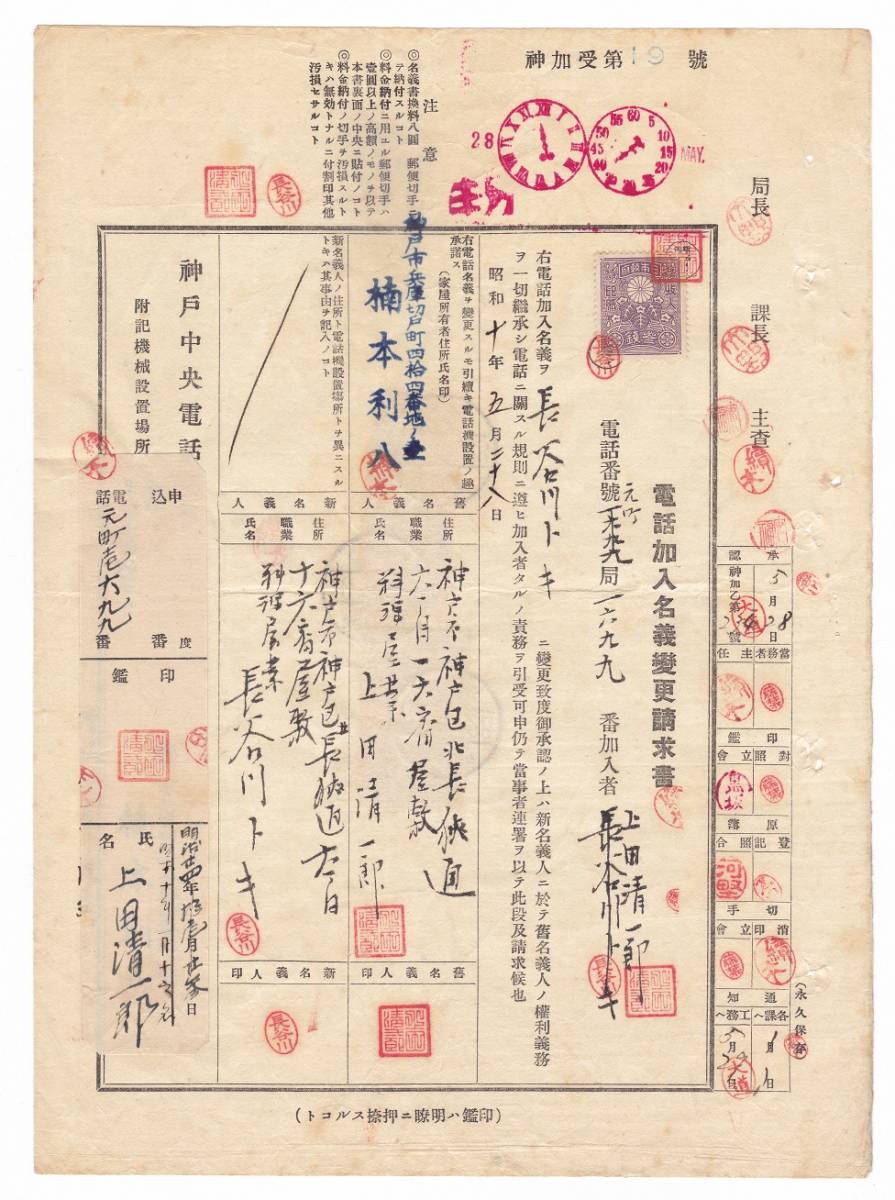 神加受第19號
注意
◎名義書換料八圓 郵便切手ニテ納付スルコト
◎料金納付ニ用ユル郵便切手ハ壹圓以上ノ高額ノモノヲ以テ本書裏面ノ中央ニ貼付ノコト
◎料金納付ノ切手ヲ汚損スルトキハ無効トナルニ付割印其他汚損セサルコト
28
MAY.
局長
課長
主査
電話加入名義變更請求書
電話番號 元町 局 一六九九 番加入者
上田清一郎
長谷川トキ
右電話加入名義ヲ 長谷川トキ ニ變更致度御承認ノ上ハ新名義人ニ於テ舊名義人ノ權利義務
ヲ一切繼承シ電話ニ關スル規則ニ遵ヒ加入者タルノ責務ヲ引受可申仍テ當事者連署ヲ以テ此段及請求候也
昭和十年五月二十八日
右電話名義ヲ變更スルモ引續キ電話機設置ノ趣承諾ス
(家屋所有者住所氏名印)
神戸市兵庫切戸町四拾四番地ノ
楠本利八
舊名義人
住所
職業
氏名
神戸市神戸区北長狭通
六丁目一六番屋敷
料理屋業
上田清一郎
舊名義人印
新名義人ノ住所ト電話機設置場所トヲ異ニスルトキハ其事由ヲ記入ノコト
新名義人
住所
職業
氏名
神戸市神戸区北長狭通六丁目
十六番屋敷
料理屋業
長谷川トキ
新名義人印
長谷川
神戸中央電話
附記機械設置場所
申込電話
元町壱六九九
番
度
印鑑
氏名
上田清一郎
承認
5月28日
神加乙第 號
當務者主任
印鑑
對照立會
原簿
登記照合
切手
消印立會
通知
各課ヘ
工務ヘ
(永久保存)
(印鑑ハ明瞭ニ押捺スルコト)